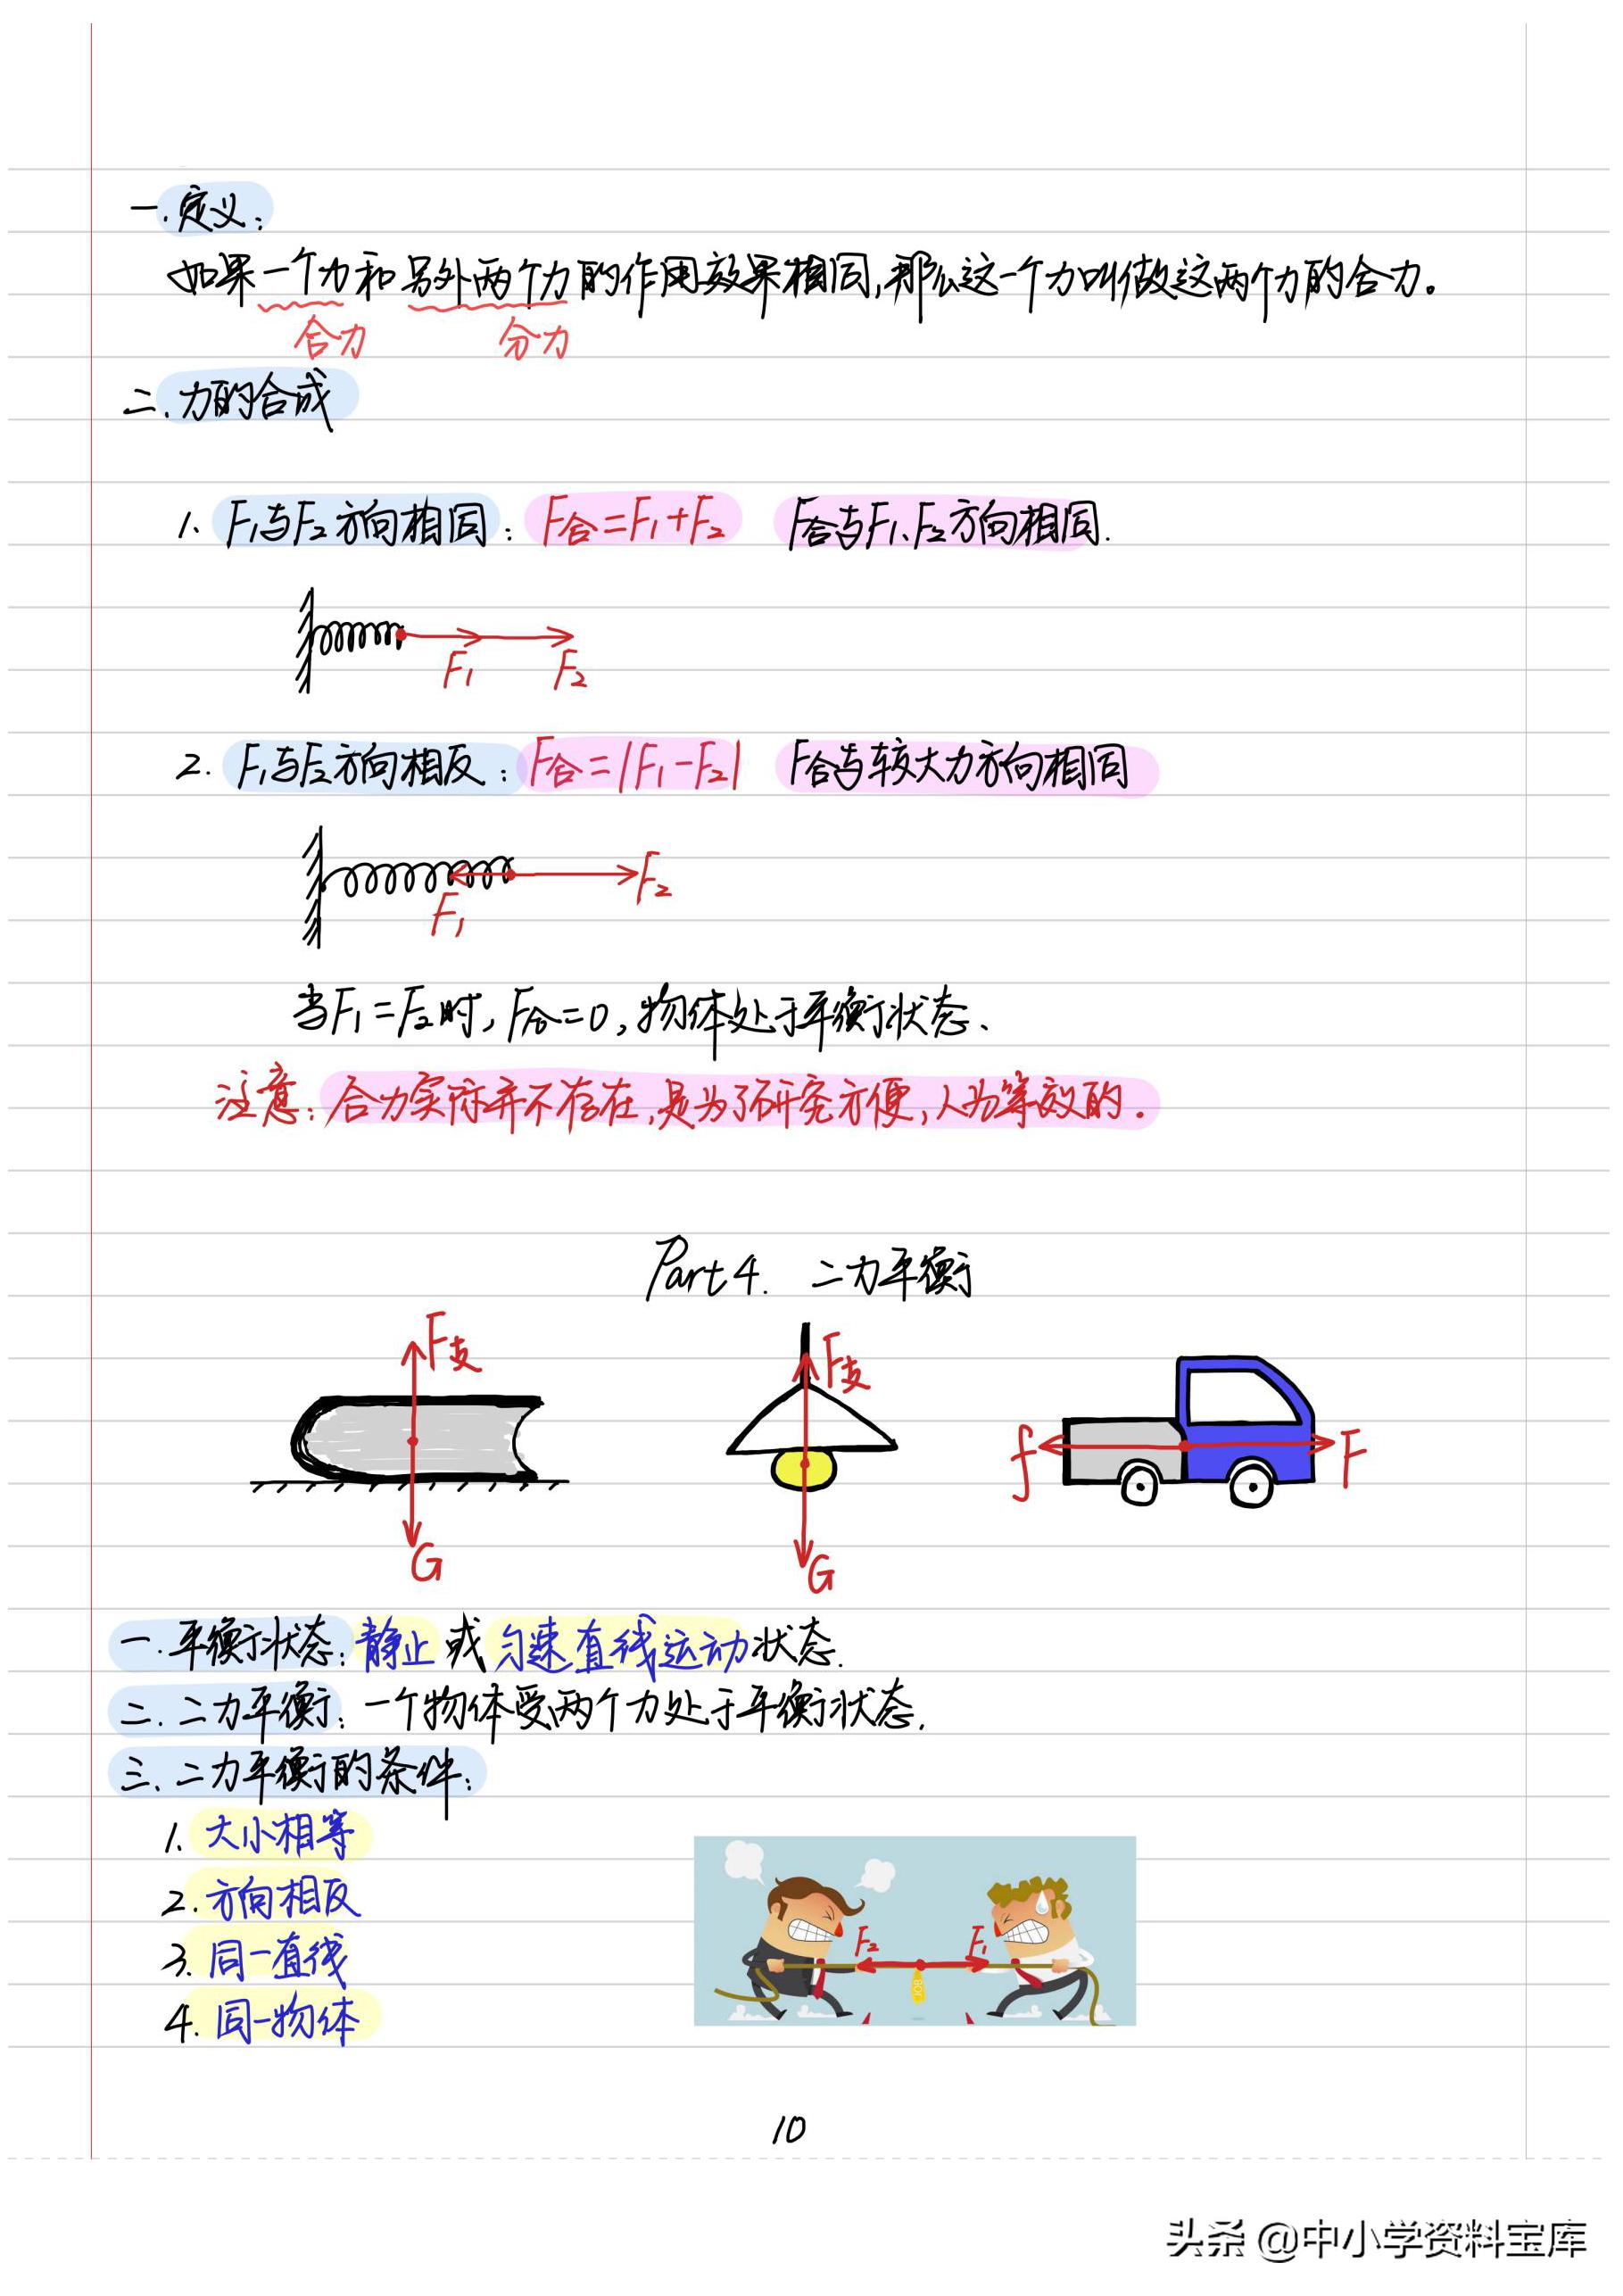 一.定义:
如果一个力和另外两个力的作用效果相同,那么这一个力叫做这两个力的合力。
合力 分力
二.力的合成
1、F₁与F₂方向相同: F合=F₁+F₂ F合与F₁、F₂方向相同.
F₁ F₂
2. F₁与F₂方向相反: F合=|F₁-F₂| F合与较大力方向相同
F₂
F₁
当F₁=F₂时,F合=0,物体处于平衡状态、
注意:合力实际并不存在,是为了研究方便,人为等效的.
Part 4. 二力平衡
F支 F支
f F
G G
一.平衡状态:静止或匀速直线运动状态.
二.二力平衡:一个物体受两个力处于平衡状态.
三.二力平衡的条件:
1.大小相等
2.方向相反
3.同一直线
4.同一物体
F₂ F₁
10
头条 @中小学资料宝库